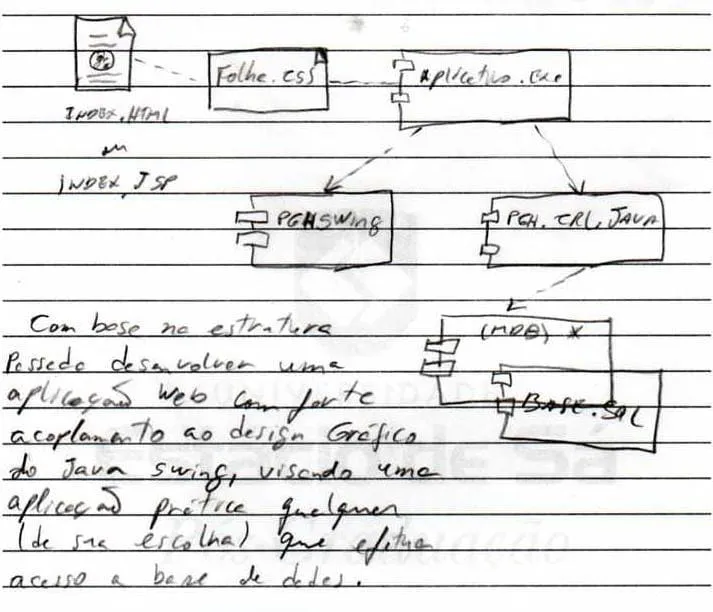 Folha.css
Aplicativo.exe
INDEX.HTML
ou
INDEX.JSP
PGHSwing
PGH.CRL.JAVA
(MDB) *
BASE.SQL
Com base na estrutura
Passada desenvolver uma
aplicação Web com forte
acoplamento ao design Gráfico
do Java swing, visando uma
aplicação prática qualquer
(de sua escolha) que efetua
acesso a base de dados.
Estácio de Sá
Pós-Graduação